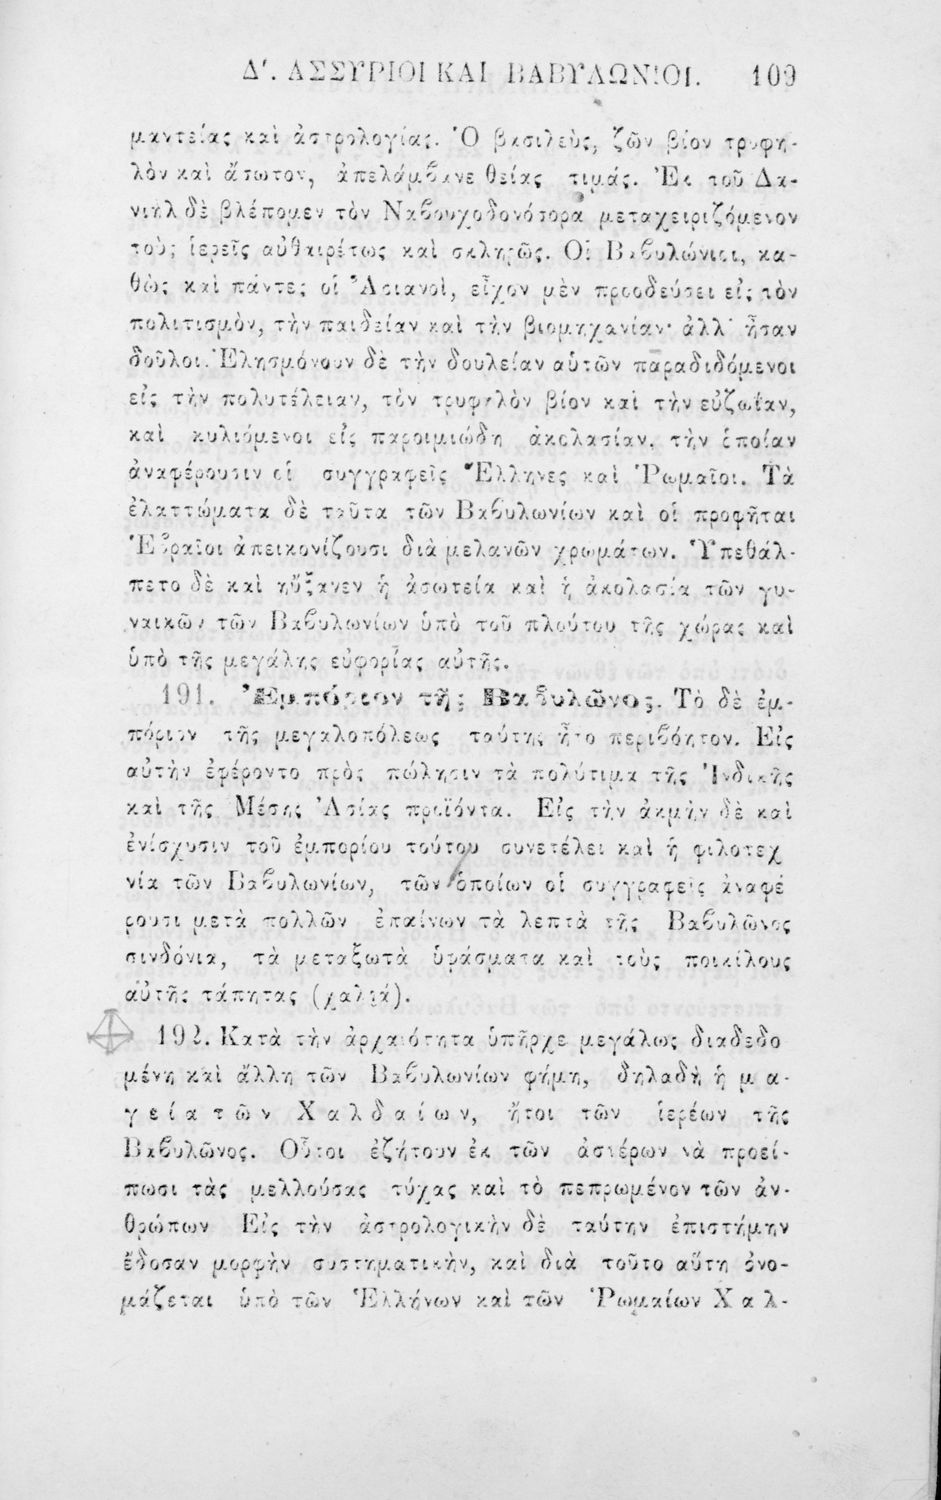 Δ'. ΑΣΣΥΡΙΟΙ ΚΑΙ ΒΑΒΥΛΩΝΙΟΙ. 109
μαντείας καὶ ἀστρολογίας. Ὁ βασιλεὺς, ζῶν βίον τρυφη-
λὸν καὶ ἄσωτον, ἀπελάμβανε θείας τιμάς. Ἐκ τοῦ Δα-
νιὴλ δὲ βλέπομεν τὸν Ναβουχοδονόσορα μεταχειριζόμενον
τοὺς ἱερεῖς αὐθαιρέτως καὶ σκληρῶς. Οἱ Βαβυλώνιοι, κα-
θὼς καὶ πάντες οἱ Ἀσιανοὶ, εἶχον μὲν προοδεύσει εἰς τὸν
πολιτισμὸν, τὴν παιδείαν καὶ τὴν βιομηχανίαν· ἀλλ' ἦσαν
δοῦλοι. Ἐλησμόνουν δὲ τὴν δουλείαν αὑτῶν παραδιδόμενοι
εἰς τὴν πολυτέλειαν, τὸν τρυφηλὸν βίον καὶ τὴν εὐζωΐαν,
καὶ κυλιόμενοι εἰς παροιμιώδη ἀκολασίαν, τὴν ὁποίαν
ἀναφέρουσιν οἱ συγγραφεῖς Ἕλληνες καὶ Ῥωμαῖοι. Τὰ
ἐλαττώματα δὲ ταῦτα τῶν Βαβυλωνίων καὶ οἱ προφῆται
Ἑβραῖοι ἀπεικονίζουσι διὰ μελανῶν χρωμάτων. Ὑπεθάλ-
πετο δὲ καὶ ηὔξανεν ἡ ἀσωτεία καὶ ἡ ἀκολασία τῶν γυ-
ναικῶν τῶν Βαβυλωνίων ὑπὸ τοῦ πλούτου τῆς χώρας καὶ
ὑπὸ τῆς μεγάλης εὐφορίας αὐτῆς.
191. Ἐμπόριον τῆς Βαβυλῶνος. Τὸ δὲ ἐμ-
πόριον τῆς μεγαλοπόλεως ταύτης ἦτο περιβόητον. Εἰς
αὐτὴν ἐφέροντο πρὸς πώλησιν τὰ πολύτιμα τῆς Ἰνδικῆς
καὶ τῆς Μέσης Ἀσίας προϊόντα. Εἰς τὴν ἀκμὴν δὲ καὶ
ἐνίσχυσιν τοῦ ἐμπορίου τούτου συνετέλει καὶ ἡ φιλοτεχ
νία τῶν Βαβυλωνίων, τῶν ὁποίων οἱ συγγραφεῖς ἀναφέ
ρουσι μετὰ πολλῶν ἐπαίνων τὰ λεπτὰ τῆς Βαβυλῶνος
σινδόνια, τὰ μεταξωτὰ ὑφάσματα καὶ τοὺς ποικίλους
αὐτῆς τάπητας (χαλιά).
192. Κατὰ τὴν ἀρχαιότητα ὑπῆρχε μεγάλως διαδεδο
μένη καὶ ἄλλη τῶν Βαβυλωνίων φήμη, δηλαδὴ ἡ μ α-
γ ε ί α τ ῶ ν Χ α λ δ α ί ω ν, ἤτοι τῶν ἱερέων τῆς
Βαβυλῶνος. Οὗτοι ἐζήτουν ἐκ τῶν ἀστέρων νὰ προεί-
πωσι τὰς μελλούσας τύχας καὶ τὸ πεπρωμένον τῶν ἀν-
θρώπων Εἰς τὴν ἀστρολογικὴν δὲ ταύτην ἐπιστήμην
ἔδοσαν μορφὴν συστηματικὴν, καὶ διὰ τοῦτο αὕτη ὀνο-
μάζεται ὑπὸ τῶν Ἑλλήνων καὶ τῶν Ῥωμαίων Χ α λ-